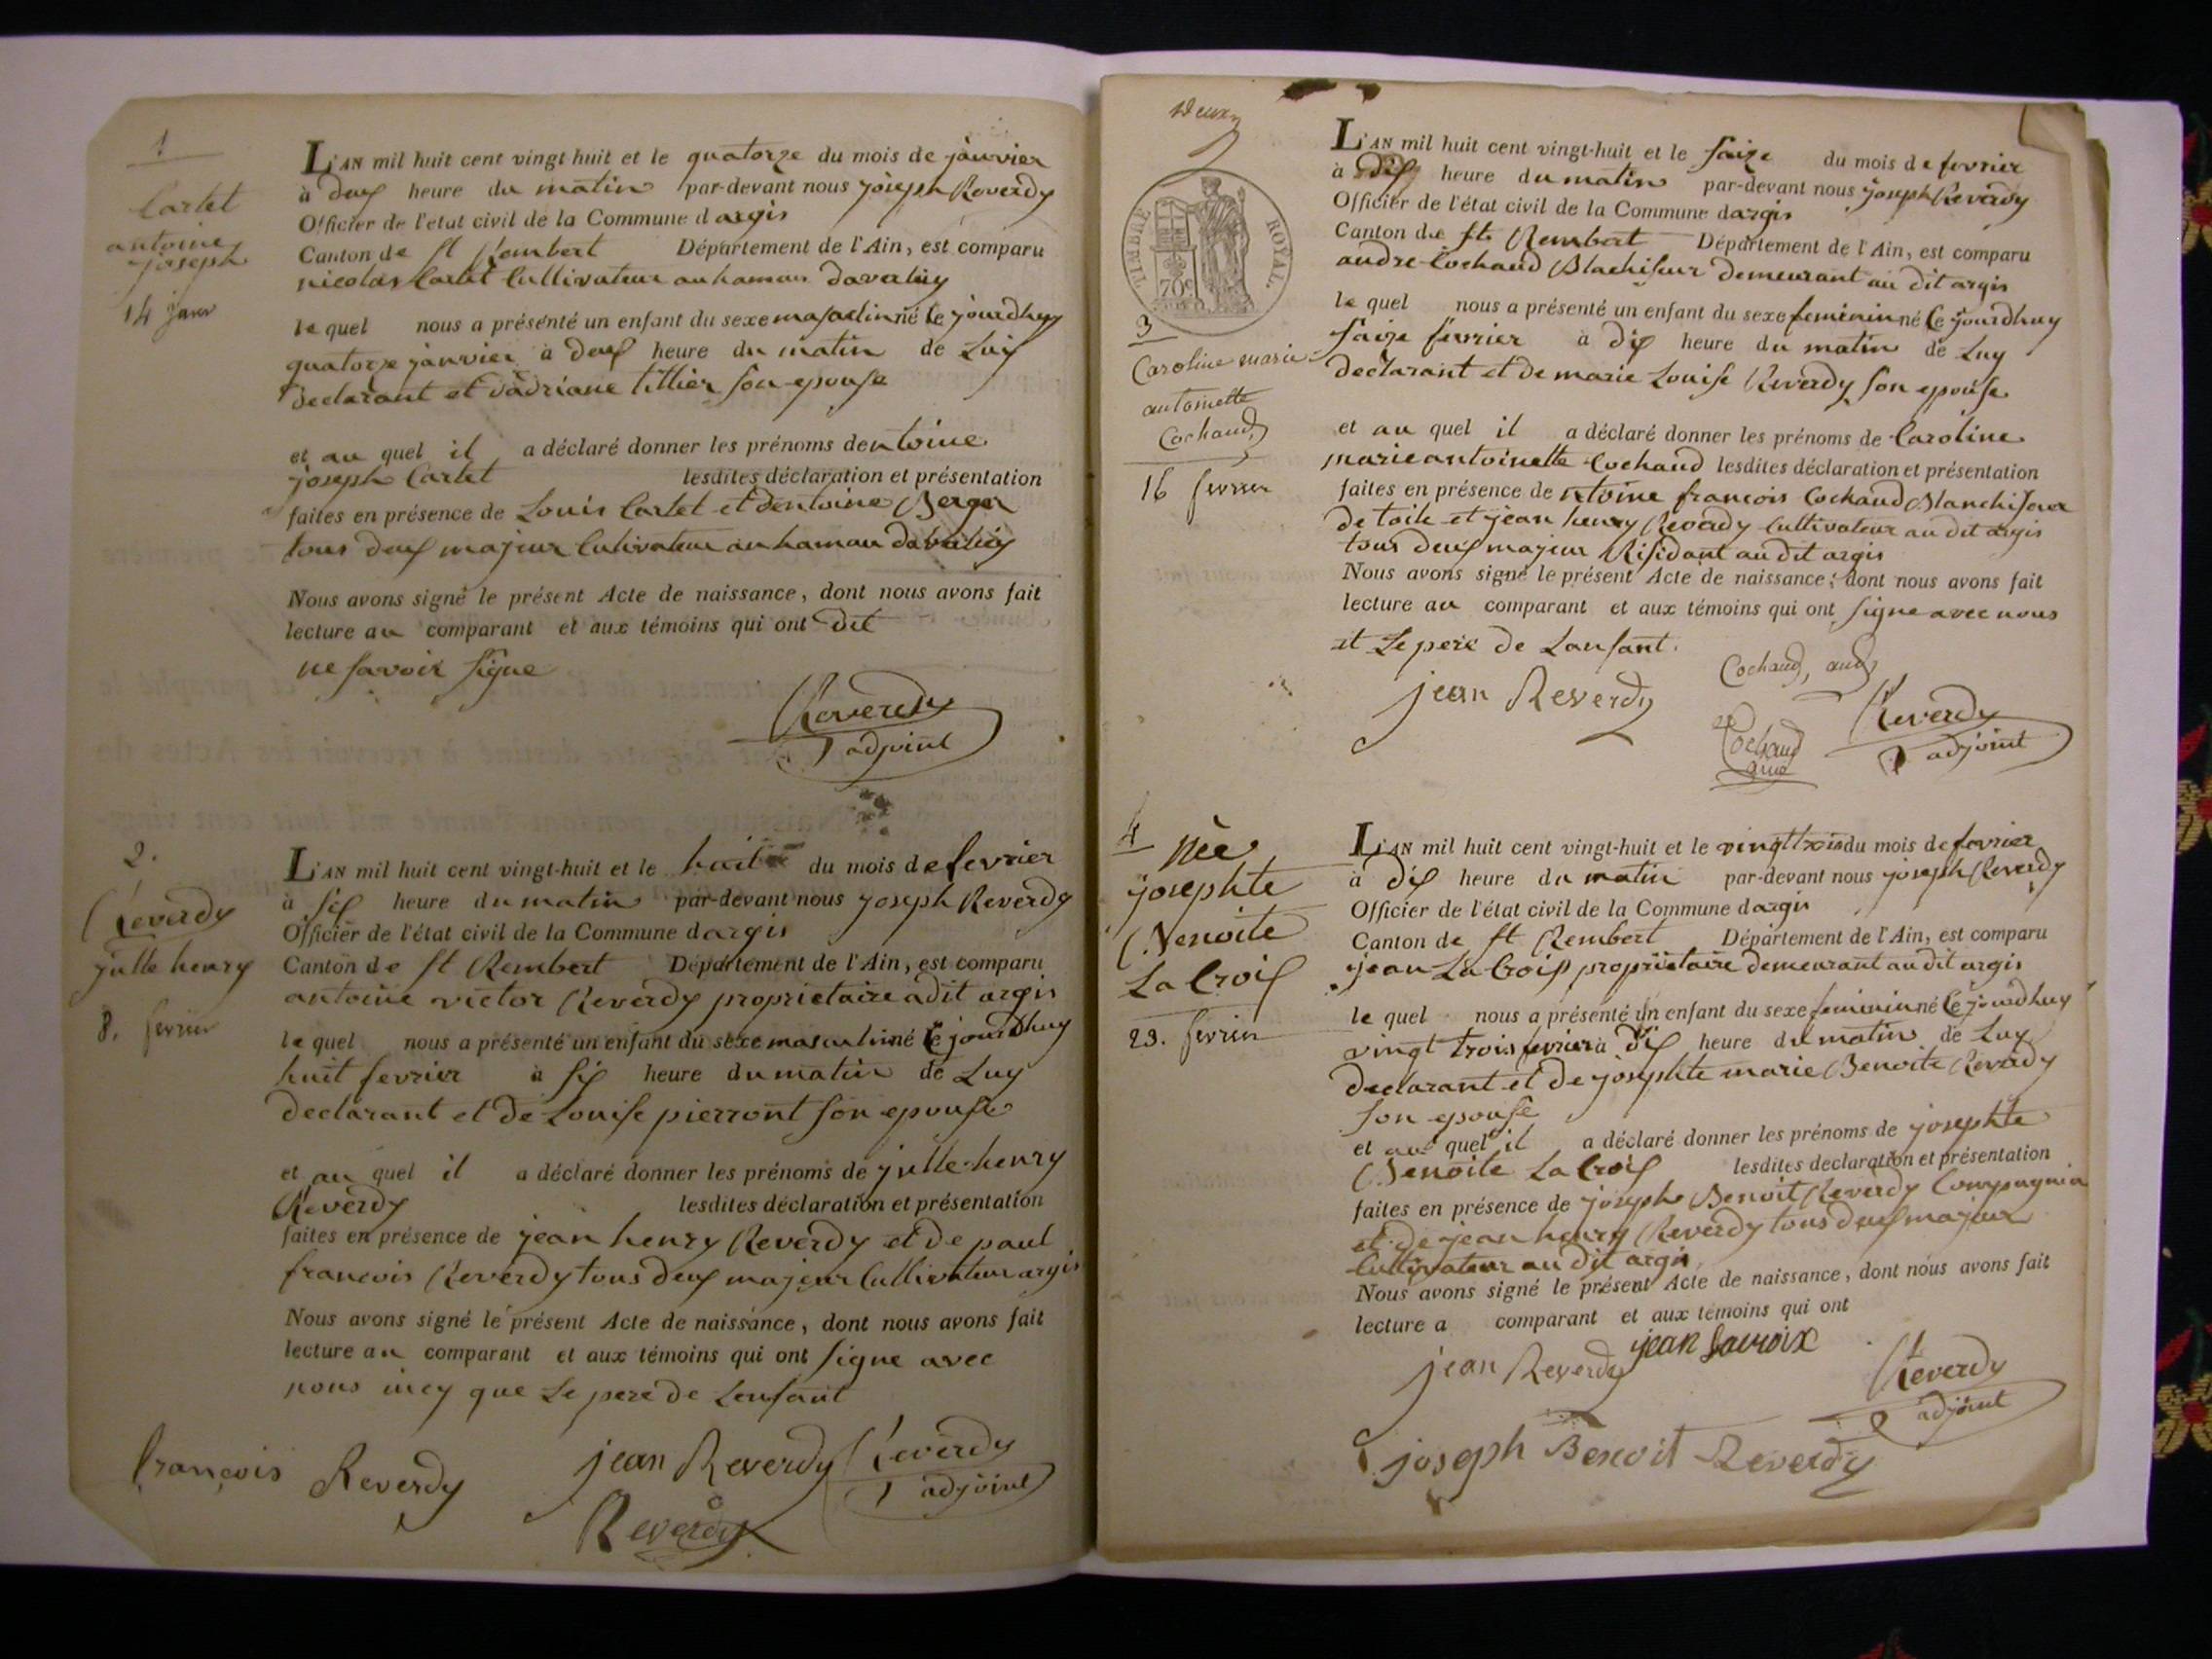 1
Cartet
antoine
joseph
14 janvr
L'AN mil huit cent vingt-huit et le quatorze du mois de janvier
à deux heure du matin par-devant nous joseph Reverdy
Officier de l'état civil de la Commune dargis
Canton de st Rembert Département de l'Ain, est comparu
nicolas Cartet Cultivateur au hamau davaluy
le quel nous a présenté un enfant du sexe masaclin né le jourdhuy
quatorze janvier à deux heure du matin de Luy
declarant et dadriane tillier son epouse
et au quel il a déclaré donner les prénoms dentoine
joseph Cartet lesdites déclaration et présentation
faites en présence de Louis Cartet et dentoine Berger
tous deux majeur Cutivateur au hamau davaluy
Nous avons signé le présent Acte de naissance, dont nous avons fait
lecture au comparant et aux témoins qui ont dit
ne savoir signe
Reverdy
adjoint
2.
Reverdy
julle henry
8. fevrier
L'AN mil huit cent vingt-huit et le huit du mois de fevrier
à six heure du matin par-devant nous joseph Reverdy
Officier de l'état civil de la Commune dargis
Canton de st Rembert Département de l'Ain, est comparu
antoine victor Reverdy proprietaire adit argis
le quel nous a présenté un enfant du sexe masculin né le jourdhuy
huit fevrier à six heure du matin de Luy
declarant et de Louise pierront son epouse
et au quel il a déclaré donner les prénoms de julle henry
Reverdy lesdites déclaration et présentation
faites en présence de jean henry Reverdy et de paul
francois Reverdy tous deux majeur Cullivateur argis
Nous avons signé le présent Acte de naissance, dont nous avons fait
lecture au comparant et aux témoins qui ont signe avec
nous incy que Le pere de Lenfant
françois Reverdy jean Reverdy Reverdy
adjoint
Reverdy
Deux
TIMBRE ROYAL.
70c
3
Caroline marie
antoinette
Cochaud
16 fevrier
L'AN mil huit cent vingt-huit et le saize du mois de fevrier
à dix heure du matin par-devant nous joseph Reverdy
Officier de l'état civil de la Commune dargis
Canton de st Rembert Département de l'Ain, est comparu
andre Cochaud Blachiseur demeurant au dit argis
le quel nous a présenté un enfant du sexe feminin né le jourdhuy
saize fevrier à dix heure du matin de Luy
declarant et de marie Louise Reverdy son epouse
et au quel il a déclaré donner les prénoms de Caroline
marie antoinette Cochaud lesdites déclaration et présentation
faites en présence de ntoine francois Cochaud Blanchiseur
de toile et jean henry Reverdy Cultivateur au dit argis
tous deux majeur Résidant au dit argis
Nous avons signé le présent Acte de naissance, dont nous avons fait
lecture au comparant et aux témoins qui ont signe avec nous
et Le pere de Lansant.
jean Reverdy Cochaud, and
Cochaud
Reverdy
adjoint
4
née
josephte
Benoite
La Croix
23. fevrier
L'AN mil huit cent vingt-huit et le vingt trois du mois de fevrier
à dix heure du matin par-devant nous joseph Reverdy
Officier de l'état civil de la Commune dargis
Canton de st Rembert Département de l'Ain, est comparu
jean La Croix proprietaire demeurant au dit argis
le quel nous a présenté un enfant du sexe feminin né le jourdhuy
vingt trois fevrier à dix heure du matin de Luy
declarant et de josephte marie Benoite Reverdy
son epouse
et au quel il a déclaré donner les prénoms de josephte
Benoite La Croix lesdites declaration et présentation
faites en présence de joseph Benoit Reverdy
et de jean henry Reverdy tous deux majeur
Cultivateur au dit argis
Nous avons signé le présent Acte de naissance, dont nous avons fait
lecture a comparant et aux témoins qui ont
jean Reverdy jean Lacroix Reverdy
adjoint
joseph Benoit Reverdy